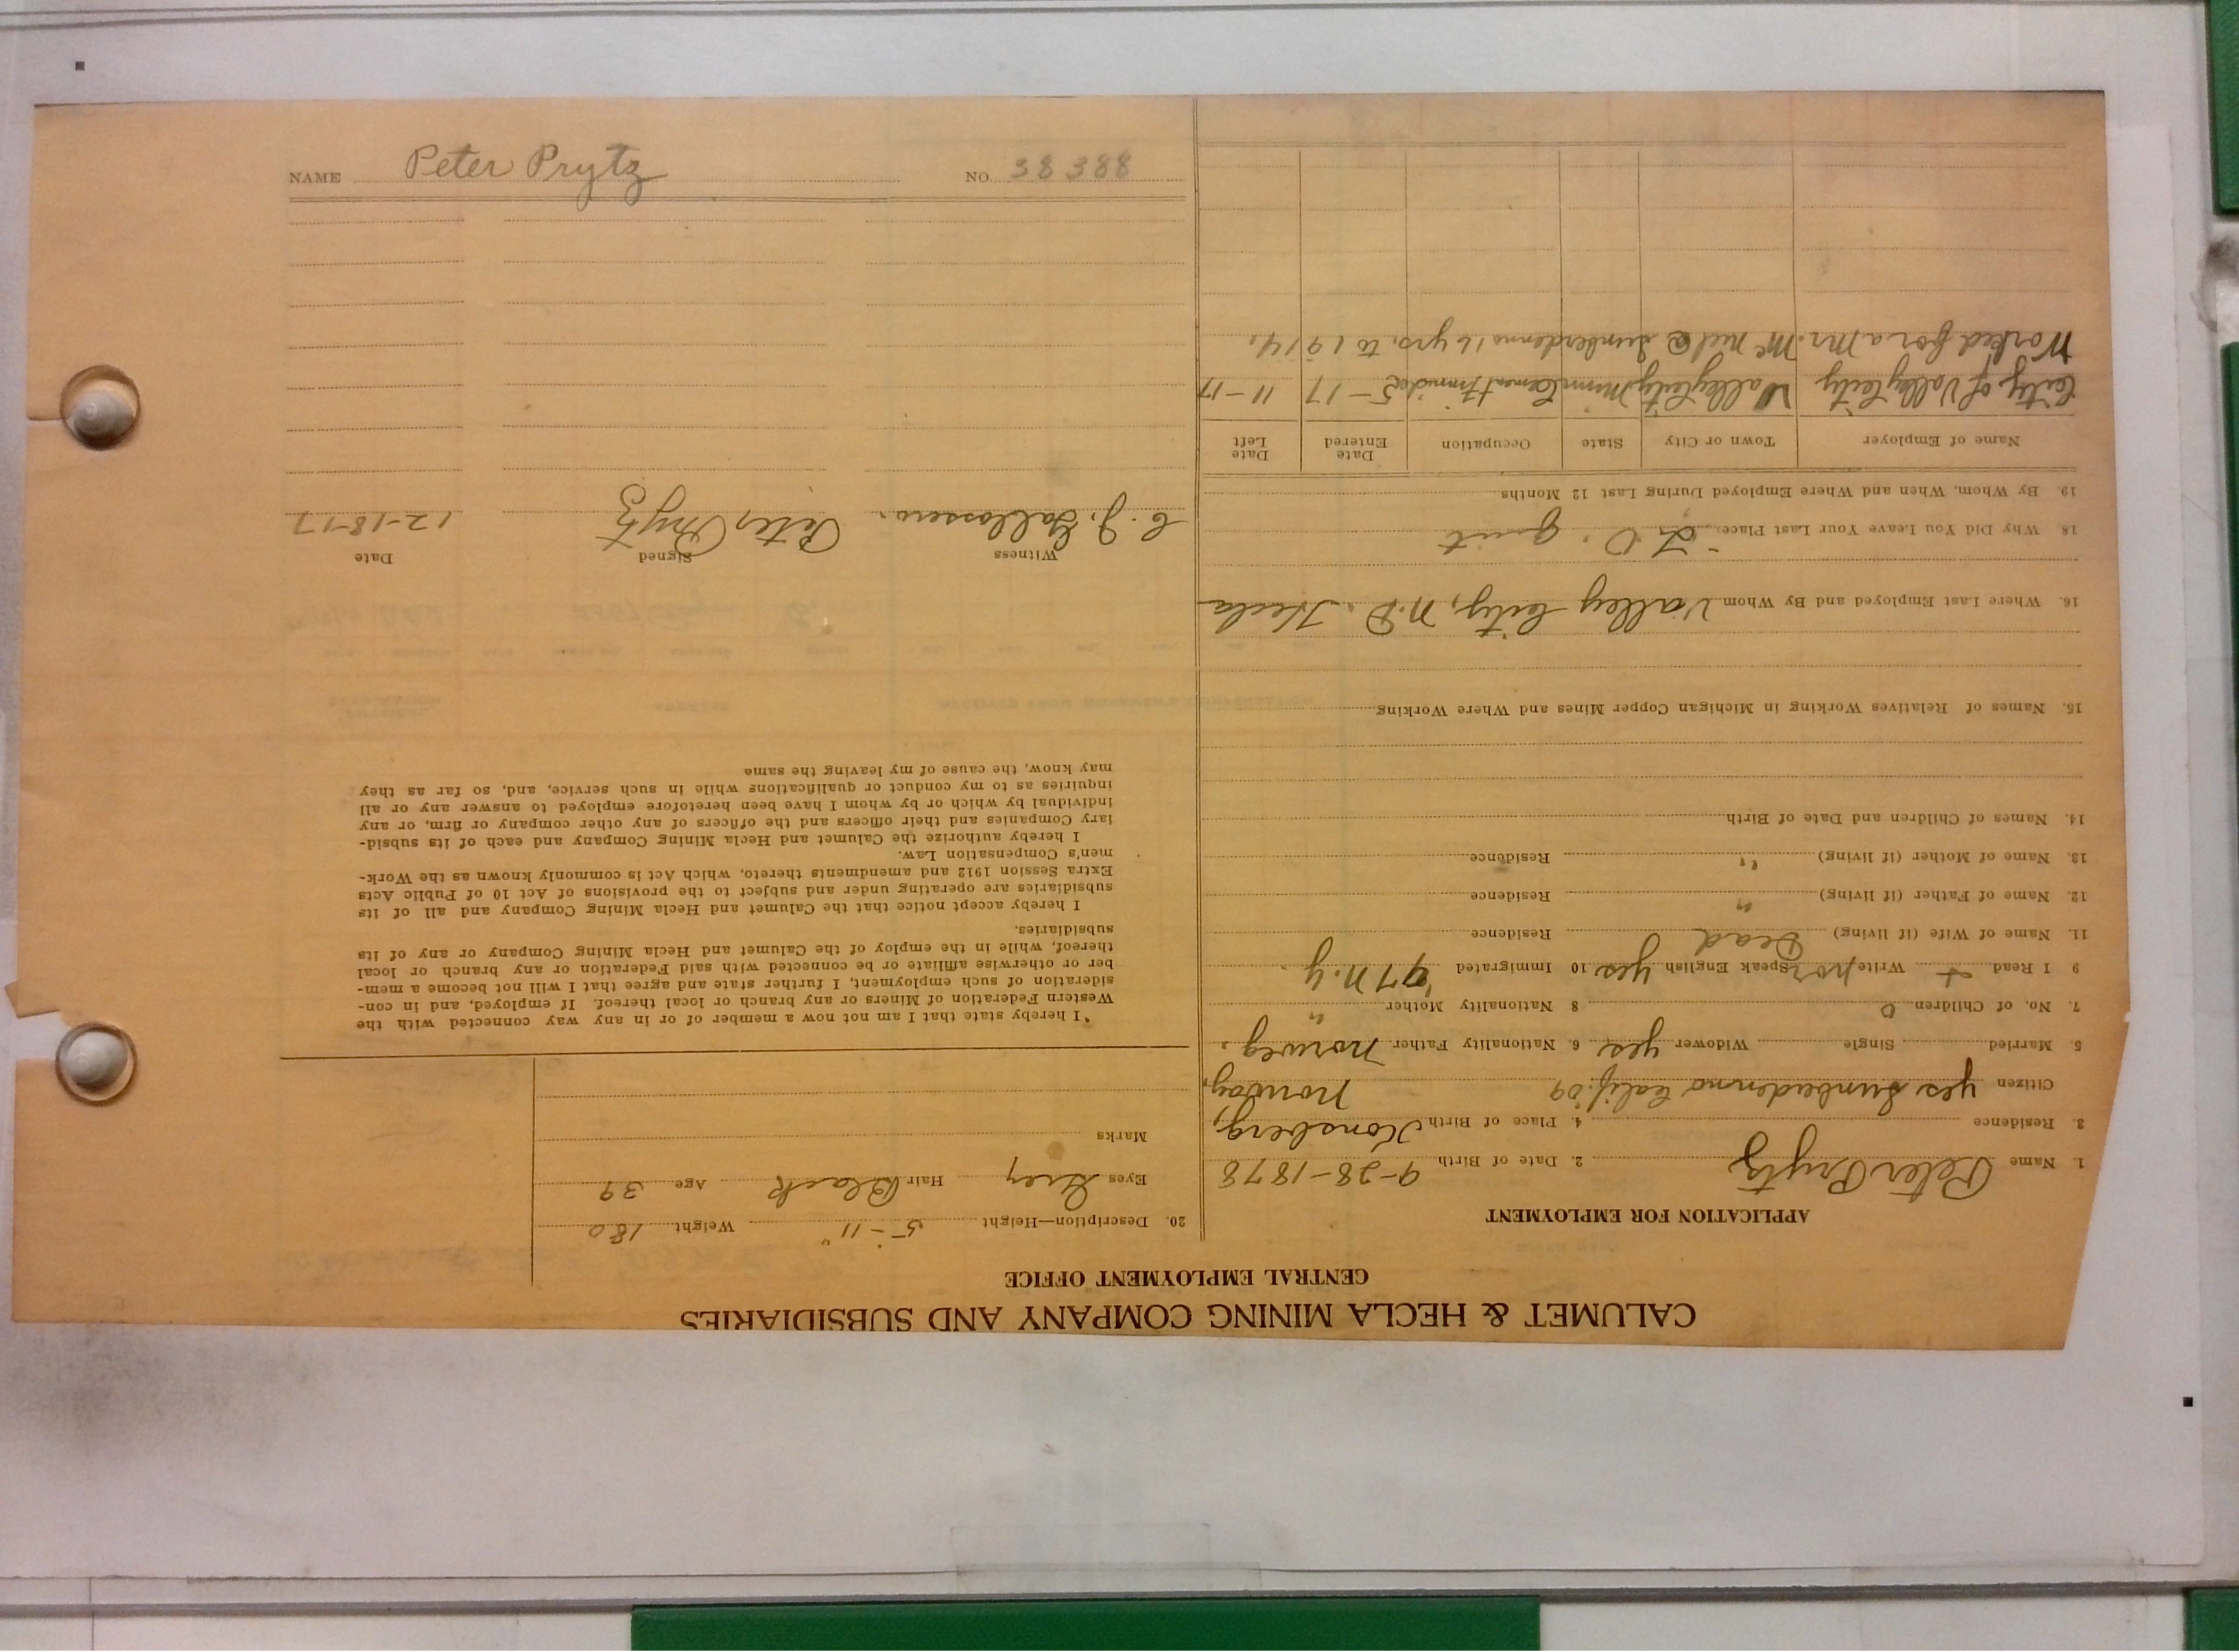 CALUMET & HECLA MINING COMPANY AND SUBSIDIARIES
CENTRAL EMPLOYMENT OFFICE
APPLICATION FOR EMPLOYMENT
1. Name Peter Prytz 2. Date of Birth 9-28-1878
3. Residence 4. Place of Birth Konsberg,
Citizen yes Sunberdenno Calif. '09 Norway,
5. Married Single Widower yes 6. Nationality Father Norweg.
7. No. of Children 0 8 Nationality Mother "
9 I Read + Write nor Speak English yes 10 Immigrated '97 N.Y.
11. Name of Wife (if living) Dead Residence
12. Name of Father (if living) " Residence
13. Name of Mother (if living) " Residence
14. Names of Children and Date of Birth
15. Names of Relatives Working in Michigan Copper Mines and Where Working
16. Where Last Employed and By Whom Valley City, N.D. Hecla
18 Why Did You Leave Your Last Place, quit
19. By Whom, When and Where Employed During Last 12 Months
Name of Employer Town or City State Occupation Date Entered Date Left
City of Valley City Valley City Minn Cement 5-17 11-17
Worked for a Mr. McNiel @ Sunberdenno 16 yrs. to 1914.
20. Description—Height 5-11" Weight 180
Eyes Grey Hair Black Age 39
Marks
"I hereby state that I am not now a member of or in any way connected with the
Western Federation of Miners or any branch or local thereof. If employed, and in con-
sideration of such employment, I further state and agree that I will not become a mem-
ber or otherwise affiliate or be connected with said Federation or any branch or local
thereof, while in the employ of the Calumet and Hecla Mining Company or any of its
subsidiaries.
I hereby accept notice that the Calumet and Hecla Mining Company and all of its
subsidiaries are operating under and subject to the provisions of Act 10 of Public Acts
Extra Session 1912 and amendments thereto, which Act is commonly known as the Work-
men's Compensation Law.
I hereby authorize the Calumet and Hecla Mining Company and each of its subsid-
iary Companies and their officers and the officers of any other company or firm, or any
individual by which or by whom I have been heretofore employed to answer any or all
inquiries as to my conduct or qualifications while in such service, and, so far as they
may know, the cause of my leaving the same
Witness Signed Date
Peter Prytz 12-18-17
NAME Peter Prytz NO. 38388